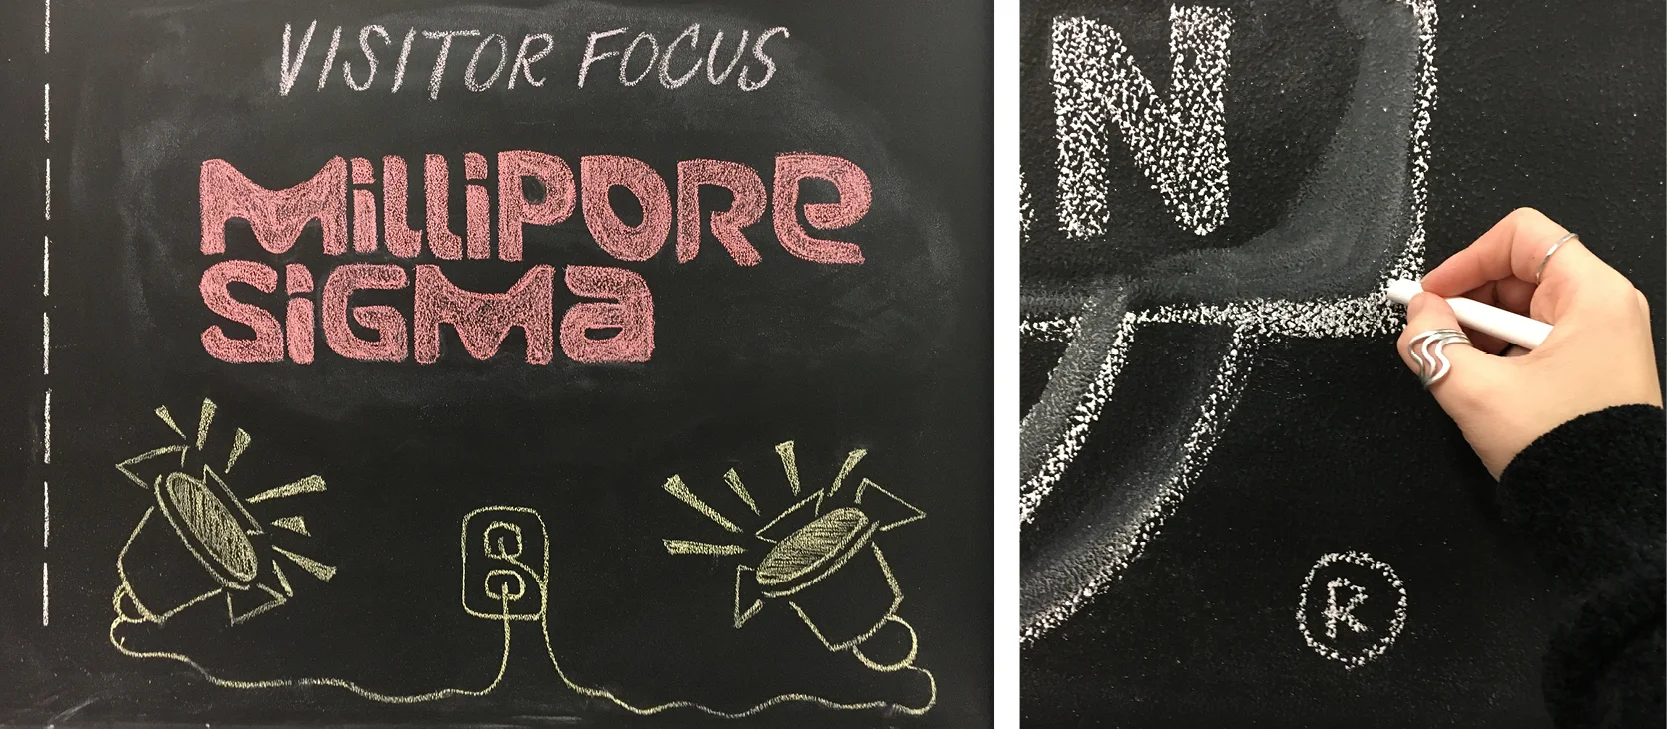 VISITOR FOCUS
MilliPORe
SiGMa
N
®